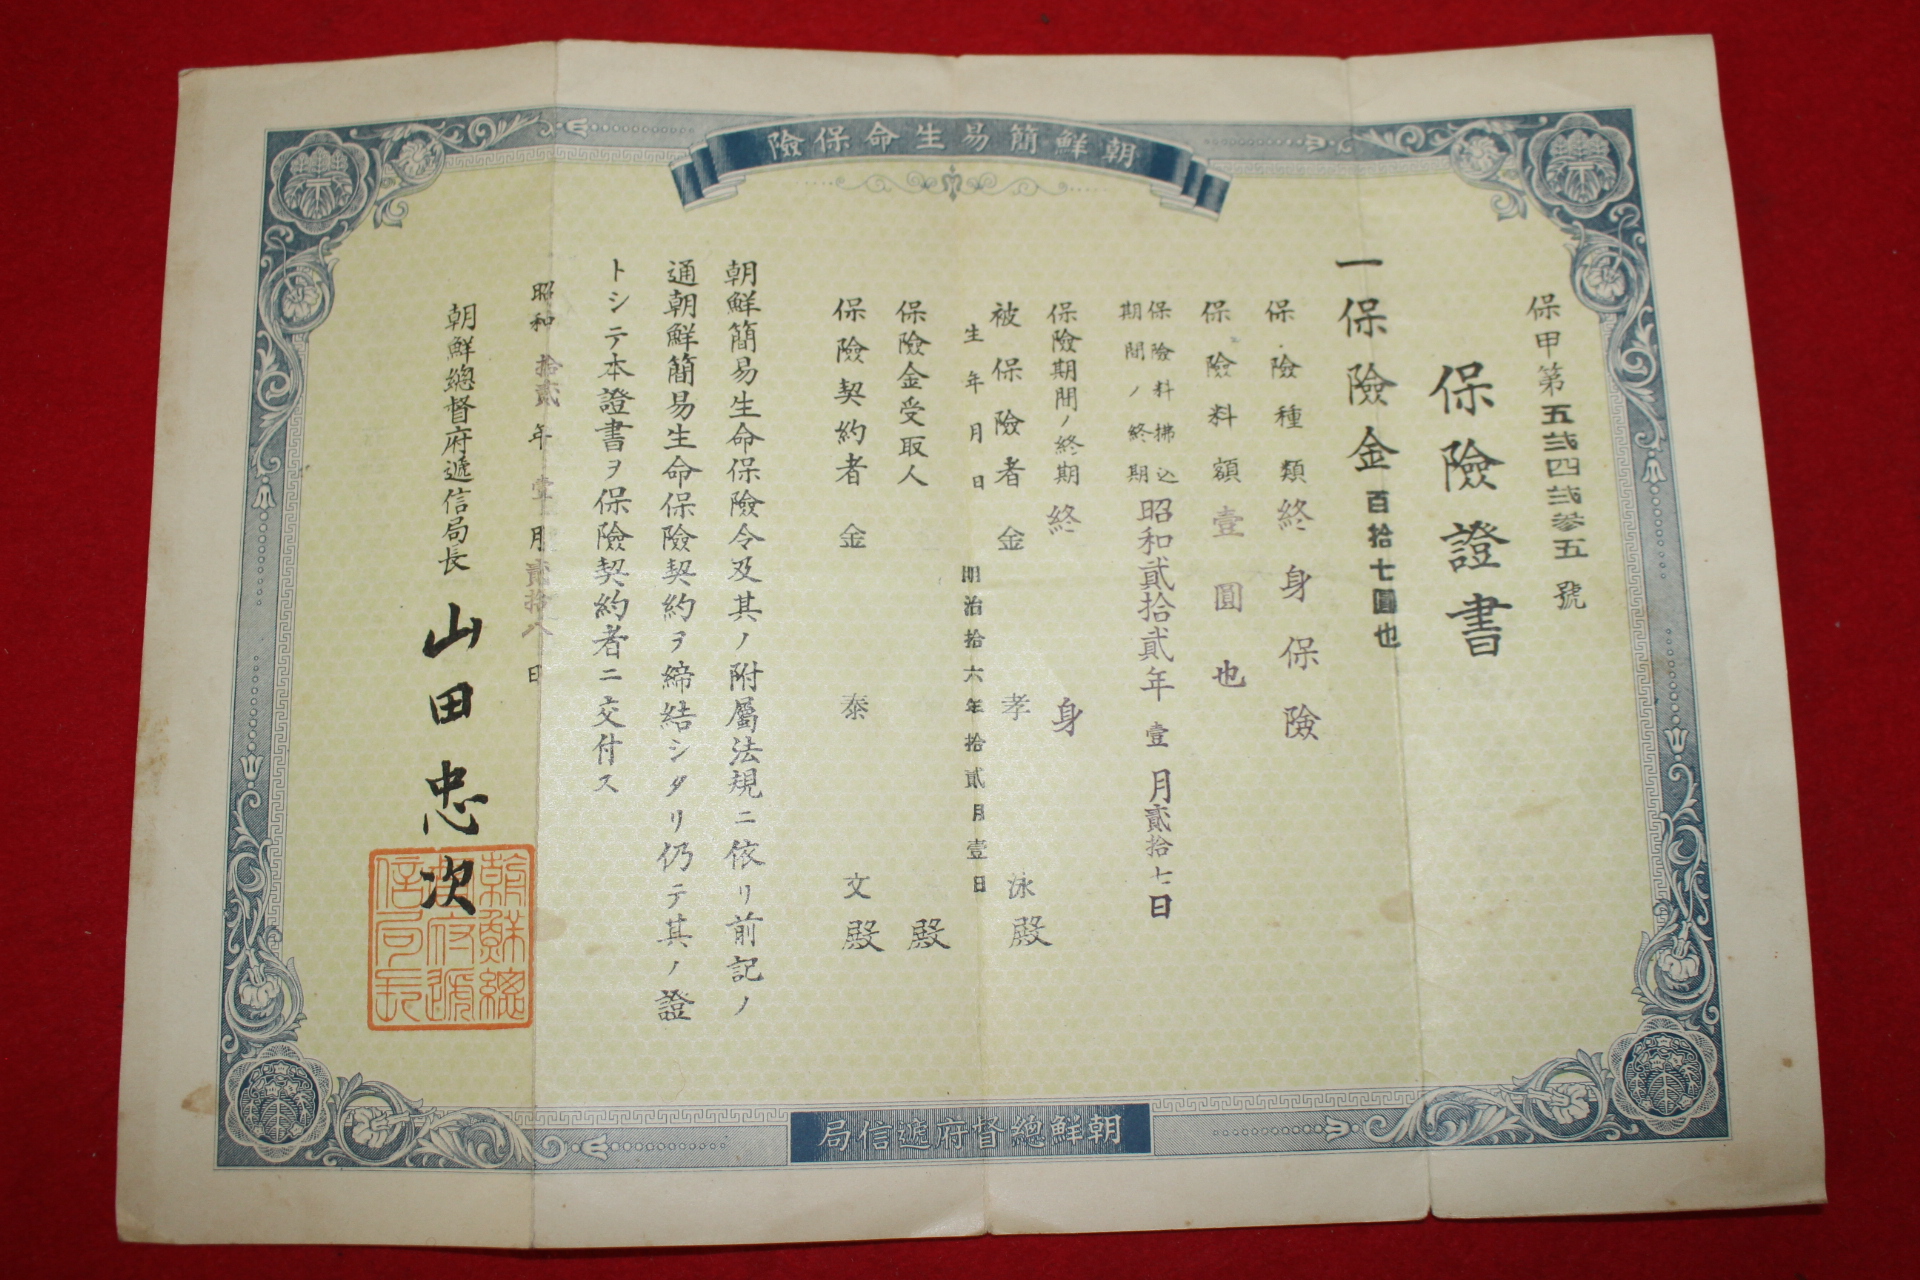 朝鮮簡易生命保險
保甲第五弐四弐参五號
保險證書
一保險金百拾七圓也
保險種類終身保險
保險料額壹圓也
保險料拂込期間ノ終期昭和貳拾貳年壹月貳拾七日
保險期間ノ終期終身
被保險者金孝泳殿
生年月日明治拾六年拾貳月壹日
保險金受取人殿
保險契約者金泰文殿
朝鮮簡易生命保險令及其ノ附屬法規ニ依リ前記ノ
通朝鮮簡易生命保險契約ヲ締結シタリ仍テ其ノ證
トシテ本證書ヲ保險契約者ニ交付ス
昭和拾貳年壹月貳拾八日
朝鮮總督府遞信局長山田忠次
朝鮮總督府遞信局長
朝鮮總督府遞信局